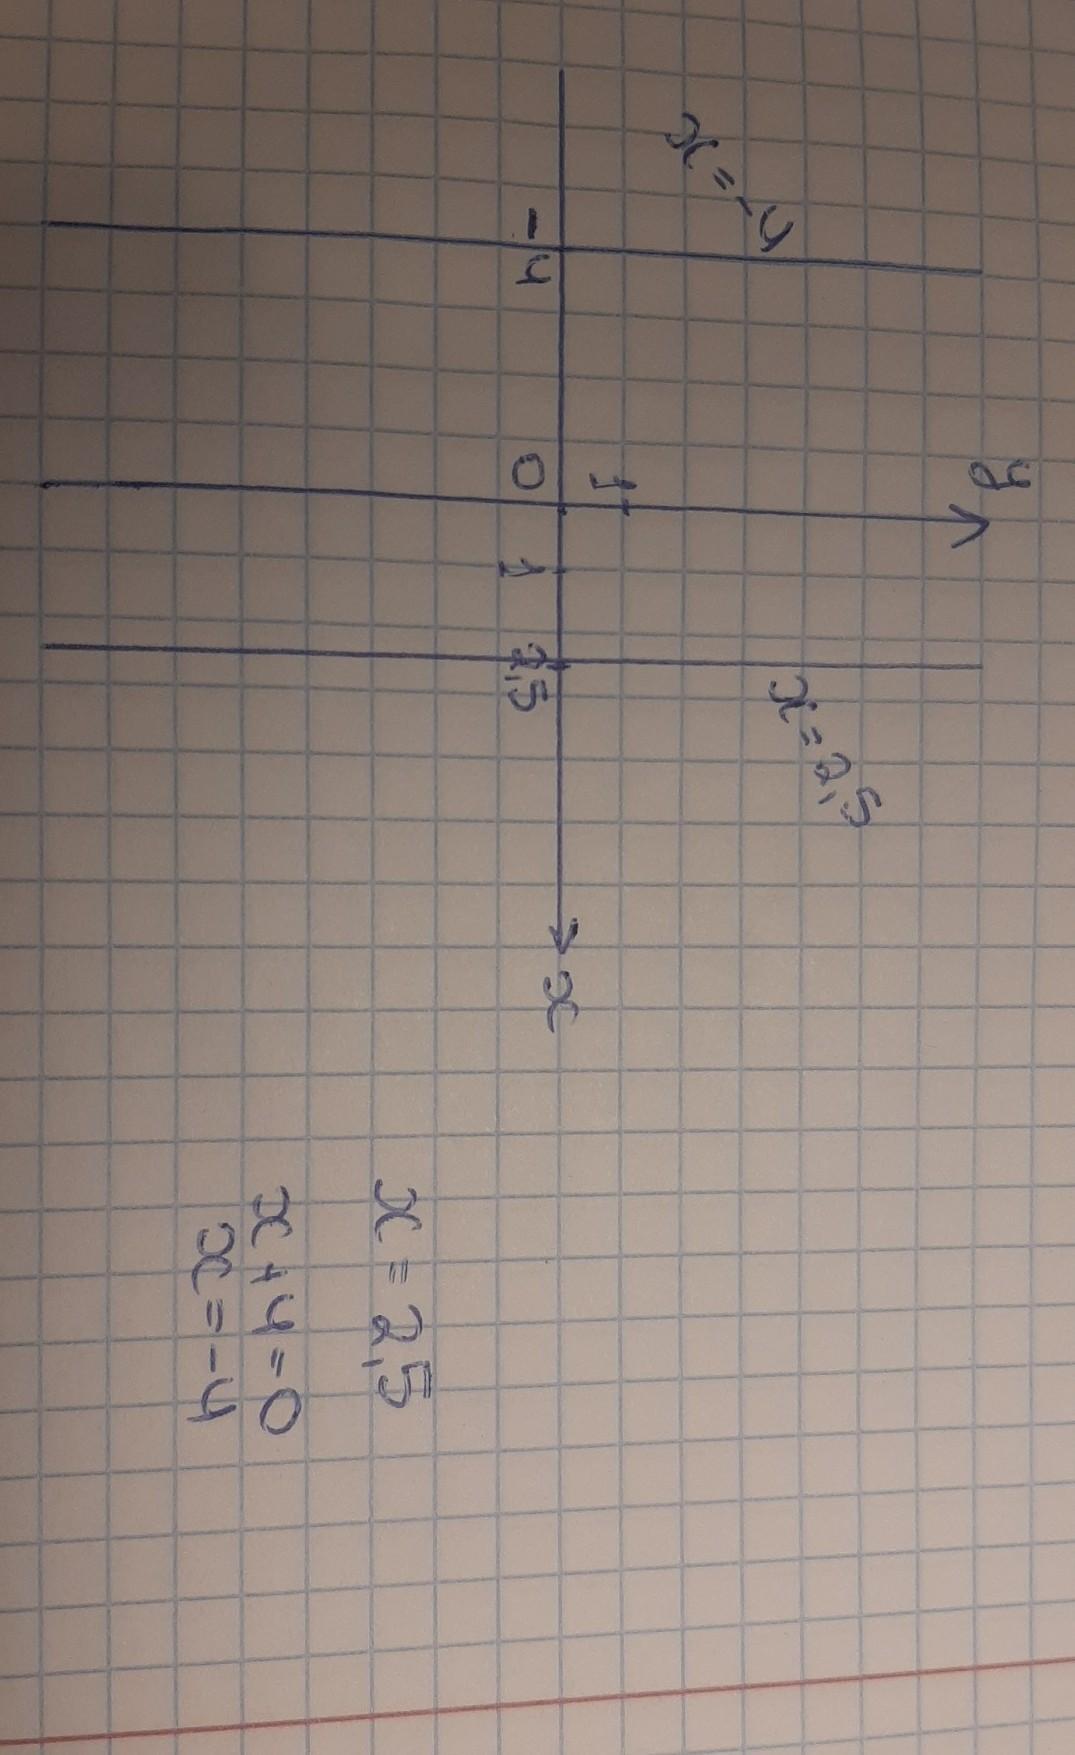 y
x=-4
x=2,5
1
-4
0
1
2,5
x
x = 2,5
x+4=0
x=-4